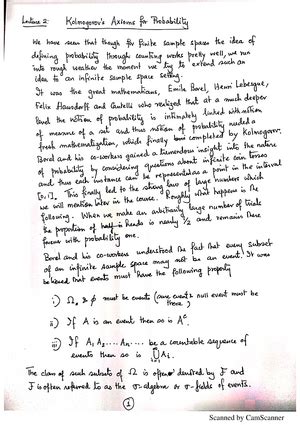 Lecture 2: Kolmogorov's Axioms for Probability
We have seen that though for finite sample spaces the idea of
defining probability through counting works pretty well, we run
into rough weather the moment we try to extend such an
idea to an infinite sample space setting.
It was the great mathematicians, Emile Borel, Henri Lebesgue,
Felix Hausdorff and Cantelli who realized that at a much deeper
level the notion of probability is intimately linked with notion
of measure of a set and thus notion of probability needed a
fresh mathematization, which finally been completed by Kolmogorov.
Borel and his co-workers gained a tremendous insight into the nature
of probability by considering questions about infinite coin tosses
and thus each instance can be represented as a point in the interval
[0,1]. This finally led to the strong law of large numbers which
we will mention later in the course. Roughly what happens is the
following. When we make an arbitrarily large number of trials
the proportion of heads is nearly 1/2 and remains there
forever with probability one.
Borel and his co-workers understood the fact that every subset
of an infinite sample space may not be an event. It was
realized that events must have the following property
i) Ω & φ must be events (sure event & null event must be
there)
ii) If A is an event then so is Aᶜ.
iii) If A₁ A₂ .... Aₙ .... be a countable sequence of
events then so is ∪ Aᵢ.
The class of such subsets of Ω is often denoted by F and
F is often referred to as the σ-algebra or σ-fields of events.
1
Scanned by CamScanner